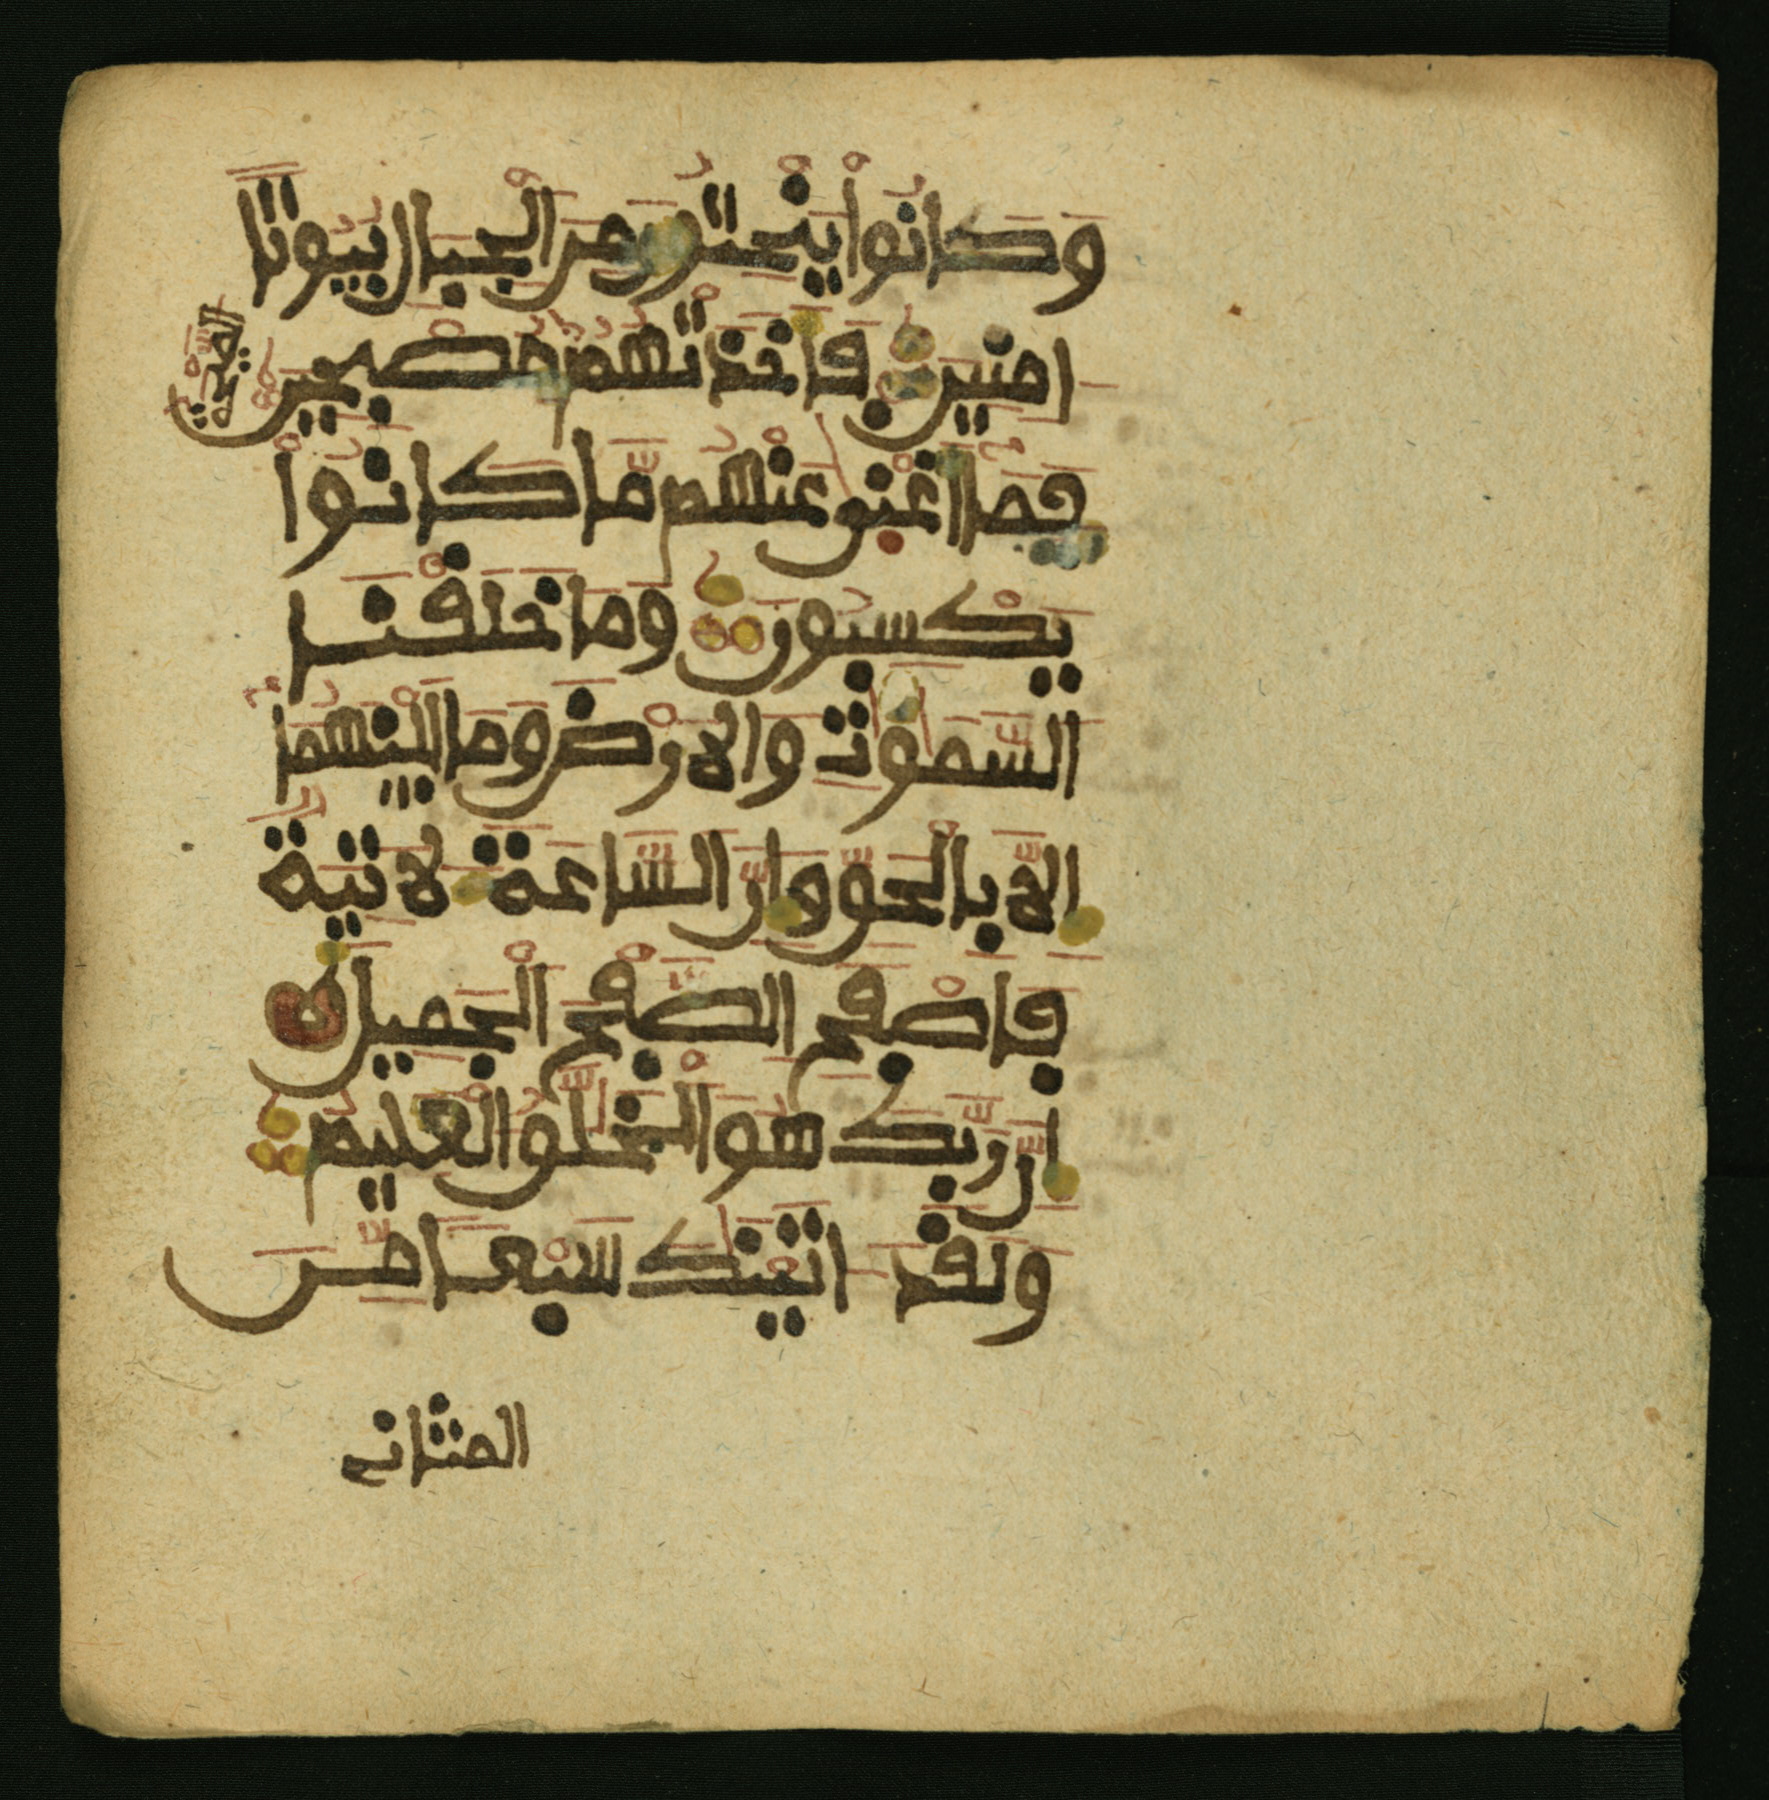 وَكَانُواْ يَنْحِتُونَ مِنَ الْجِبَالِ بُيُوتًا
اٰمِنِينَ فَأَخَذَتْهُمُ مُصْبِحِينَ
الصَّيْحَةُ
فَمَا أَغْنٰى عَنْهُم مَّا كَانُواْ
يَكْسِبُونَ وَمَا خَلَقْنَا
السَّمٰوٰتِ وَالْأَرْضَ وَمَا بَيْنَهُمَا
إِلَّا بِالْحَقِّ وَإِنَّ السَّاعَةَ لَأٰتِيَةٌ
فَاصْفَحِ الصَّفْحَ الْجَمِيلَ
إِنَّ رَبَّكَ هُوَ الْخَلّٰقُ الْعَلِيمُ
وَلَقَدَ اٰتَيْنٰكَ سَبْعًا مِّنَ
المثاني